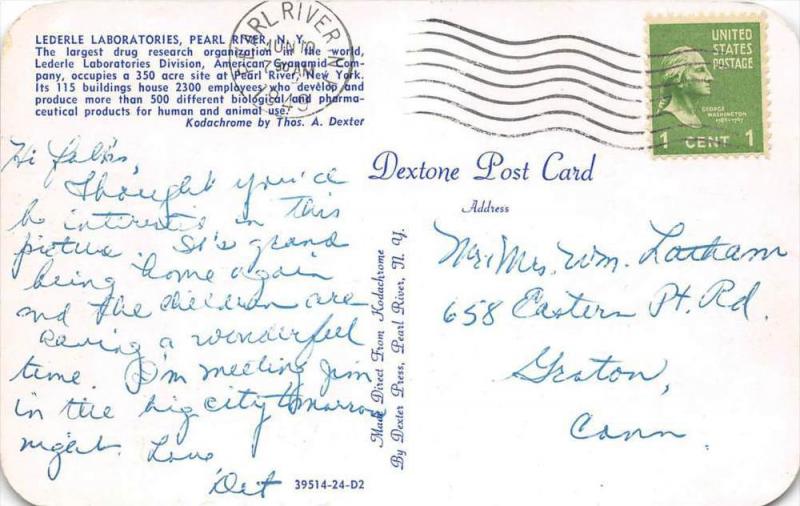 LEDERLE LABORATORIES, PEARL RIVER, N. Y.
The largest drug research organization in the world,
Lederle Laboratories Division, American Cyanamid Com-
pany, occupies a 350 acre site at Pearl River, New York.
Its 115 buildings house 2300 employees who develop and
produce more than 500 different biological and pharma-
ceutical products for human and animal use.
Kodachrome by Thos. A. Dexter
PEARL RIVER, N.Y.
JUN 10
AM
1949
UNITED
STATES
POSTAGE
GEORGE
WASHINGTON
1 CENT 1
Hi Folks,
Thought you'd
be interested in this
picture. It's grand
being home again
and the children are
having a wonderful
time. I'm meeting Jim
in the big city tomorrow
night. Love
Det
39514-24-D2
Made Direct From Kodachrome
By Dexter Press, Pearl River, N. Y.
Dextone Post Card
Address
Mr. & Mrs. Wm. Latham
658 Eastern Pt. Rd.
Groton,
Conn.